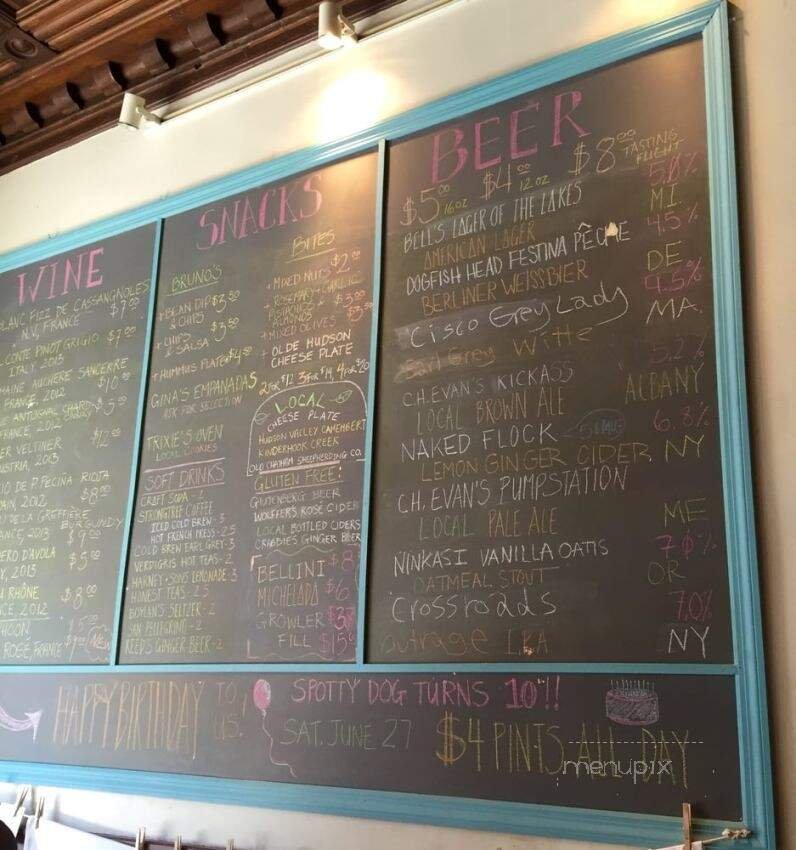 WINE
BLANC FIZZ DE CASSANGNOLES $7.00
N.V, FRANCE
CONTE PINOT GRIGIO $7.00
ITALY, 2013
SANCERRE
FRANCE, 2012 $10.00
$5.00
FRANCE, 2012
VELTINER $12.00
AUSTRIA, 2013
DE P. PECINA RIOJA
2012 $8.00
DE LA GREFFIERE
BURGUNDY
2013 $9.00
D'AVOLA $5.00
2013
RHÔNE $8.00
2012
ROSE, FRANCE $9.00 NEW
SNACKS
BRUNO'S
+ BEAN DIP $3.50
& CHIPS
+ CHIPS $3.50
& SALSA
+ HUMMUS PLATE $4.50
GINA'S EMPANADAS
ASK FOR SELECTION
TRIXIE'S OVEN
LOCAL COOKIES
SOFT DRINKS
CRAFT SODA - 2
STRONGTREE COFFEE
ICED COLD BREW - 3
HOT FRENCH PRESS - 2.5
COLD BREW EARL GREY - 3
VERDIGRIS HOT TEAS - 2
HARNEY + SONS LEMONADE - 3
HONEST TEAS - 2.5
BOYLAN'S SELTZER - 2
SAN PELLEGRINO - 2
REED'S GINGER BEER - 2
BITES
+ MIXED NUTS $2.00
+ ROSEMARY + GARLIC
PISTACHIOS $3.00
+ MIXED OLIVES $3.50
+ OLDE HUDSON
CHEESE PLATE
2 FOR $12, 3 FOR $14, 4 FOR $20
LOCAL
CHEESE PLATE
HUDSON VALLEY CAMEMBERT
KINDERHOOK CREEK
OLD CHATHAM SHEEPHERDING CO.
GLUTEN FREE:
GLUTENBERG BEER
WOLFFER'S ROSE CIDER
LOCAL BOTTLED CIDERS
CRABBIES GINGER BEER
BELLINI $8
MICHELADA $6
GROWLER $3
FILL $15
BEER
$5.00 16 OZ $4.00 12 OZ $8.00 TASTING FLIGHT
BELL'S LAGER OF THE LAKES 5.0%
AMERICAN LAGER MI
DOGFISH HEAD FESTINA PÊCHE 4.5%
BERLINER WEISSBIER DE
Cisco Grey Lady 4.5%
Earl Grey Witte MA
C.H. EVAN'S KICKASS 5.2%
LOCAL BROWN ALE ALBANY
NAKED FLOCK 6.8%
LEMON GINGER CIDER NY
C.H. EVAN'S PUMPSTATION
LOCAL PALE ALE ME
NINKASI VANILLA OATIS 7.0%
OATMEAL STOUT OR
Crossroads 7.0%
outrage IPA NY
HAPPY BIRTHDAY TO US!
SPOTTY DOG TURNS 10!!
SAT. JUNE 27 $4 PINTS ALL DAY
menupix